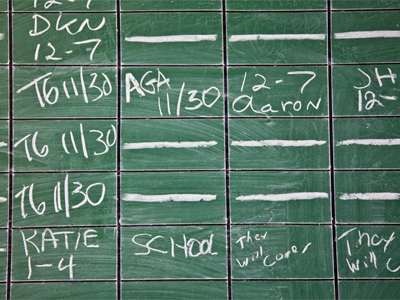 DKN
12-7
T6 11/30
AGA
11/30
12-7
aaron
JH
12-
T6 11/30
T6 11/30
KATIE
1-4
SCHOOL
They
will
come
They
will c